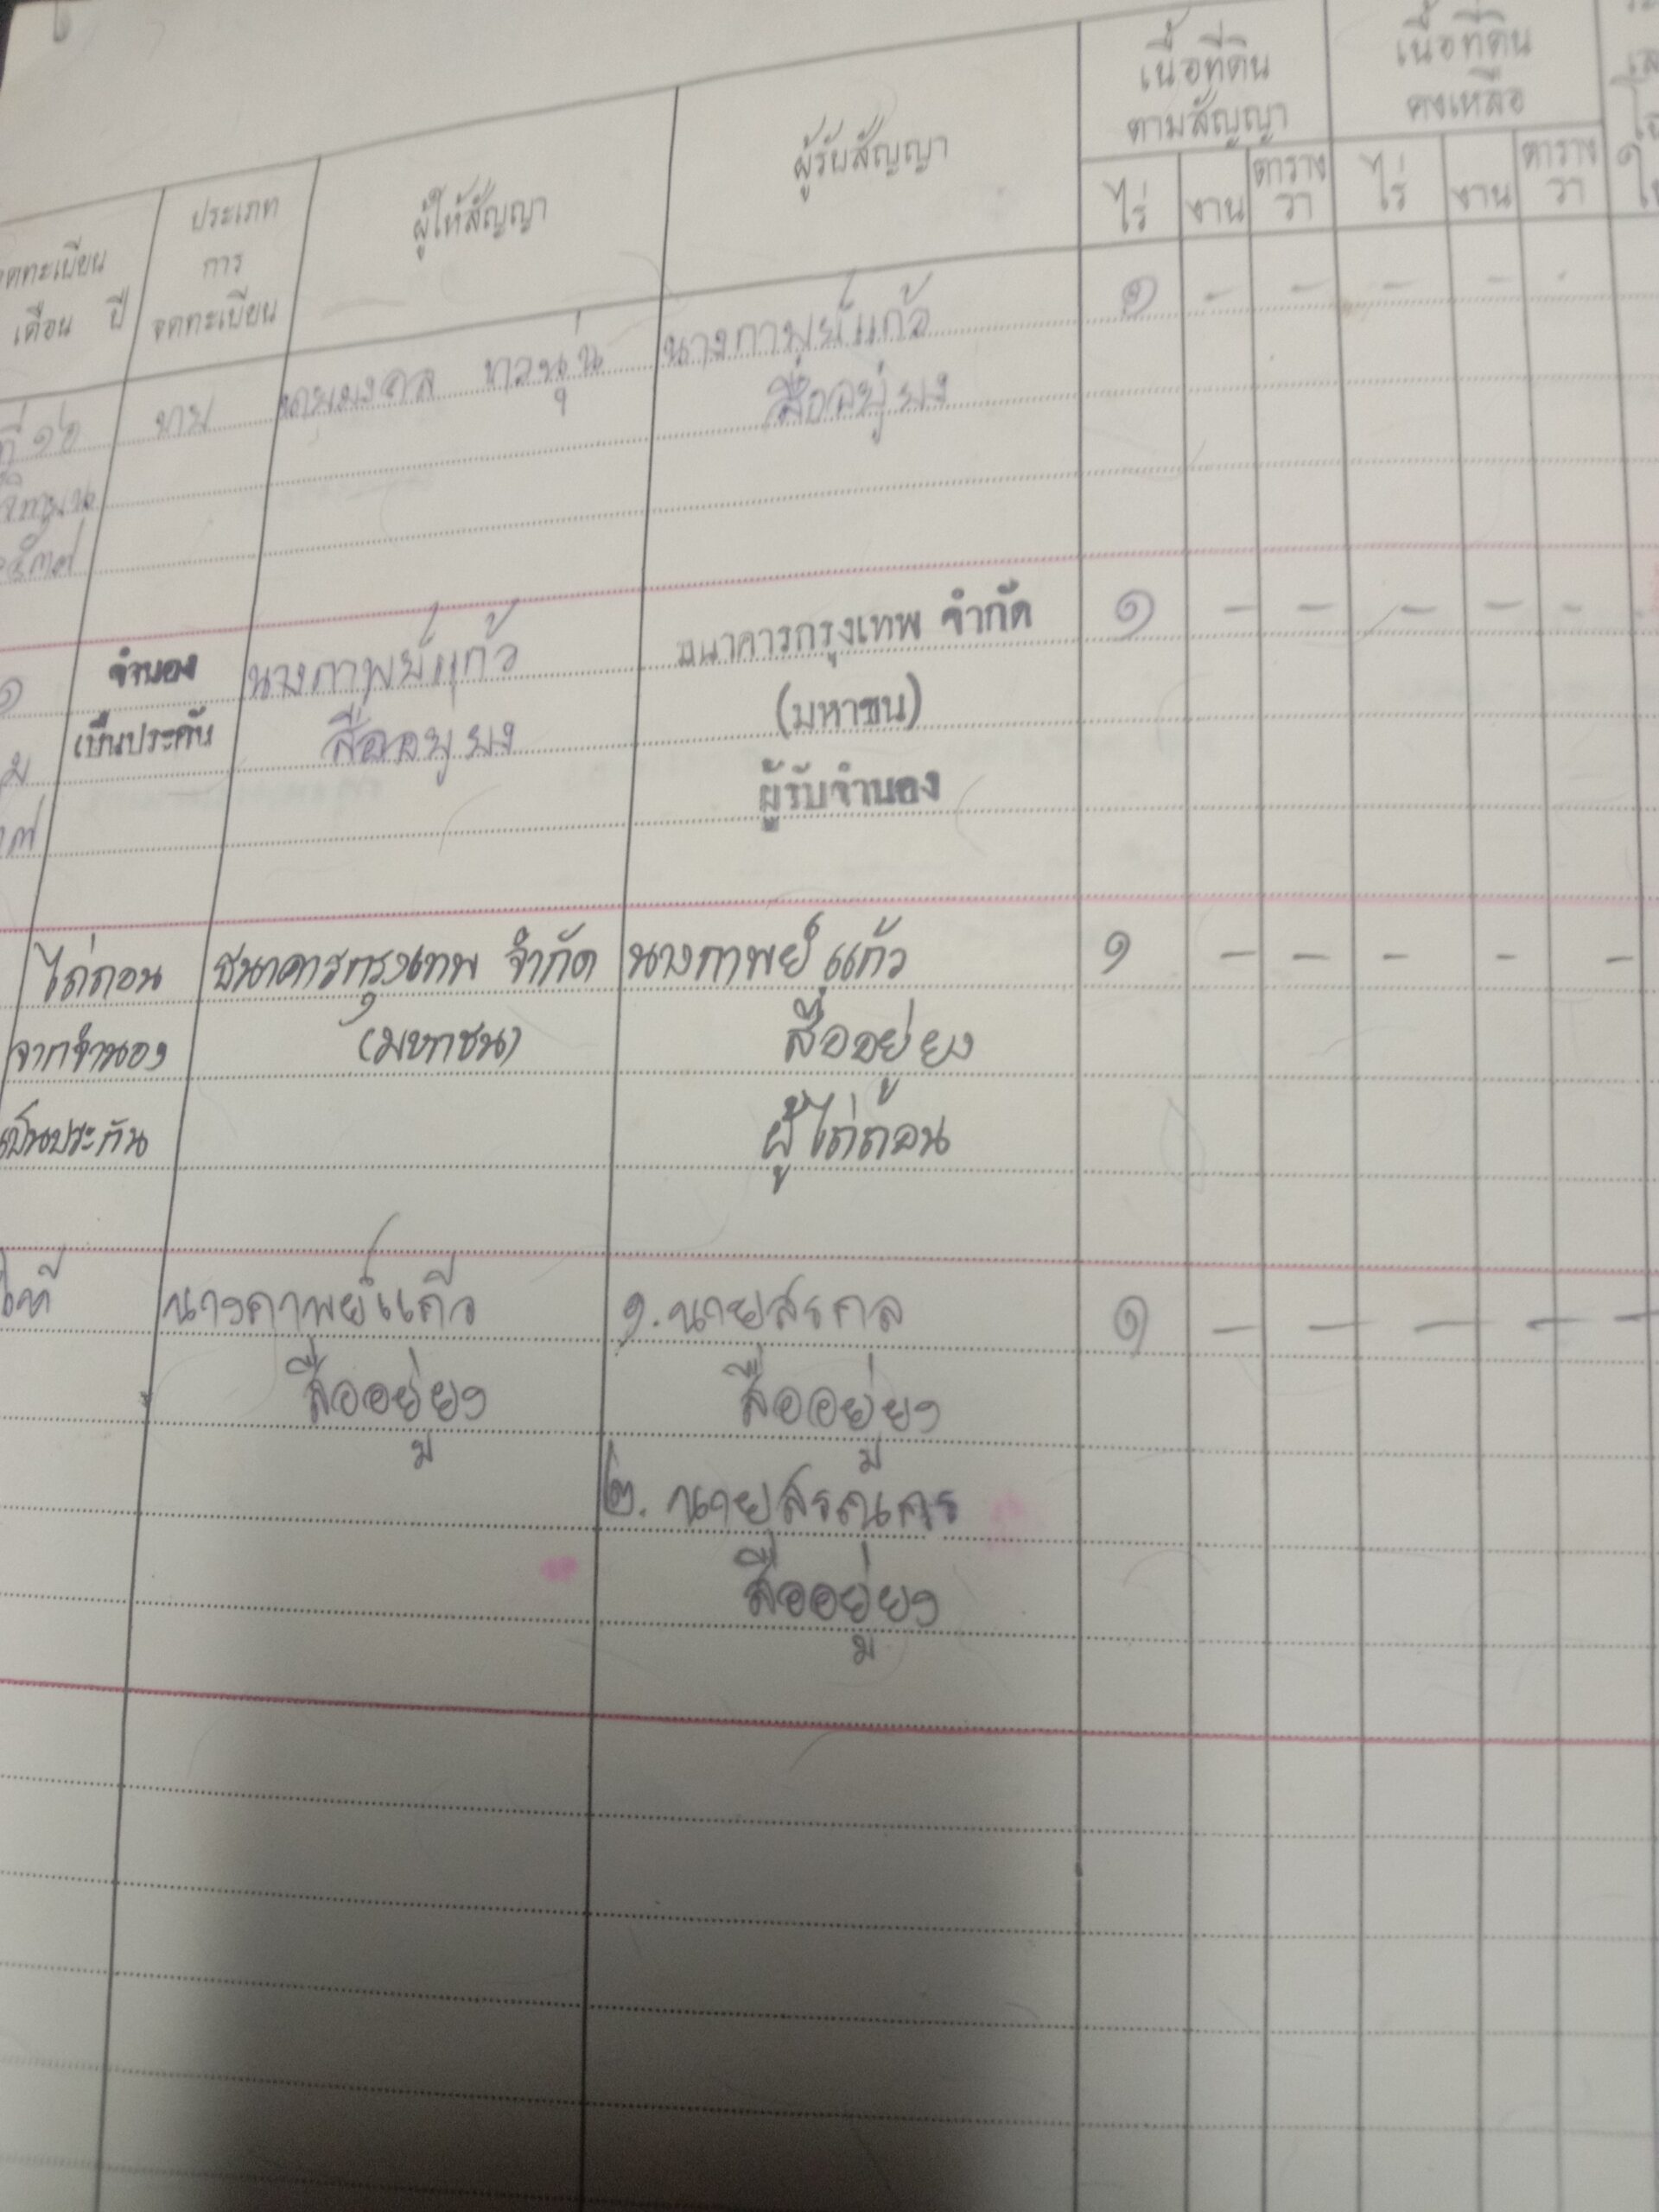 เนื้อที่ดิน
ตามสัญญา
เนื้อที่ดิน
คงเหลือ
จดทะเบียน
เดือน ปี
ประเภท
การ
จดทะเบียน
ผู้ให้สัญญา
ผู้รับสัญญา
ไร่ งาน ตาราง
วา
ไร่ งาน ตาราง
วา
ที่ ๑๒ ขาย นายมงคล นางกาพย์แก้ว ๑ - - - - -
สืออยู่ยง
จำนอง นางกาพย์แก้ว ธนาคารกรุงเทพ จำกัด ๑ - - - - -
เป็นประกัน สืออยู่ยง (มหาชน)
ผู้รับจำนอง
ไถ่ถอน ธนาคารกรุงเทพ จำกัด นางกาพย์แก้ว ๑ - - - - -
จากจำนอง (มหาชน) สืออยู่ยง
เป็นประกัน ผู้ไถ่ถอน
นางกาพย์แก้ว ๑. นายสรกล ๑ - - - - -
สืออยู่ยง สืออยู่ยง
๒. นาย
สืออยู่ยง